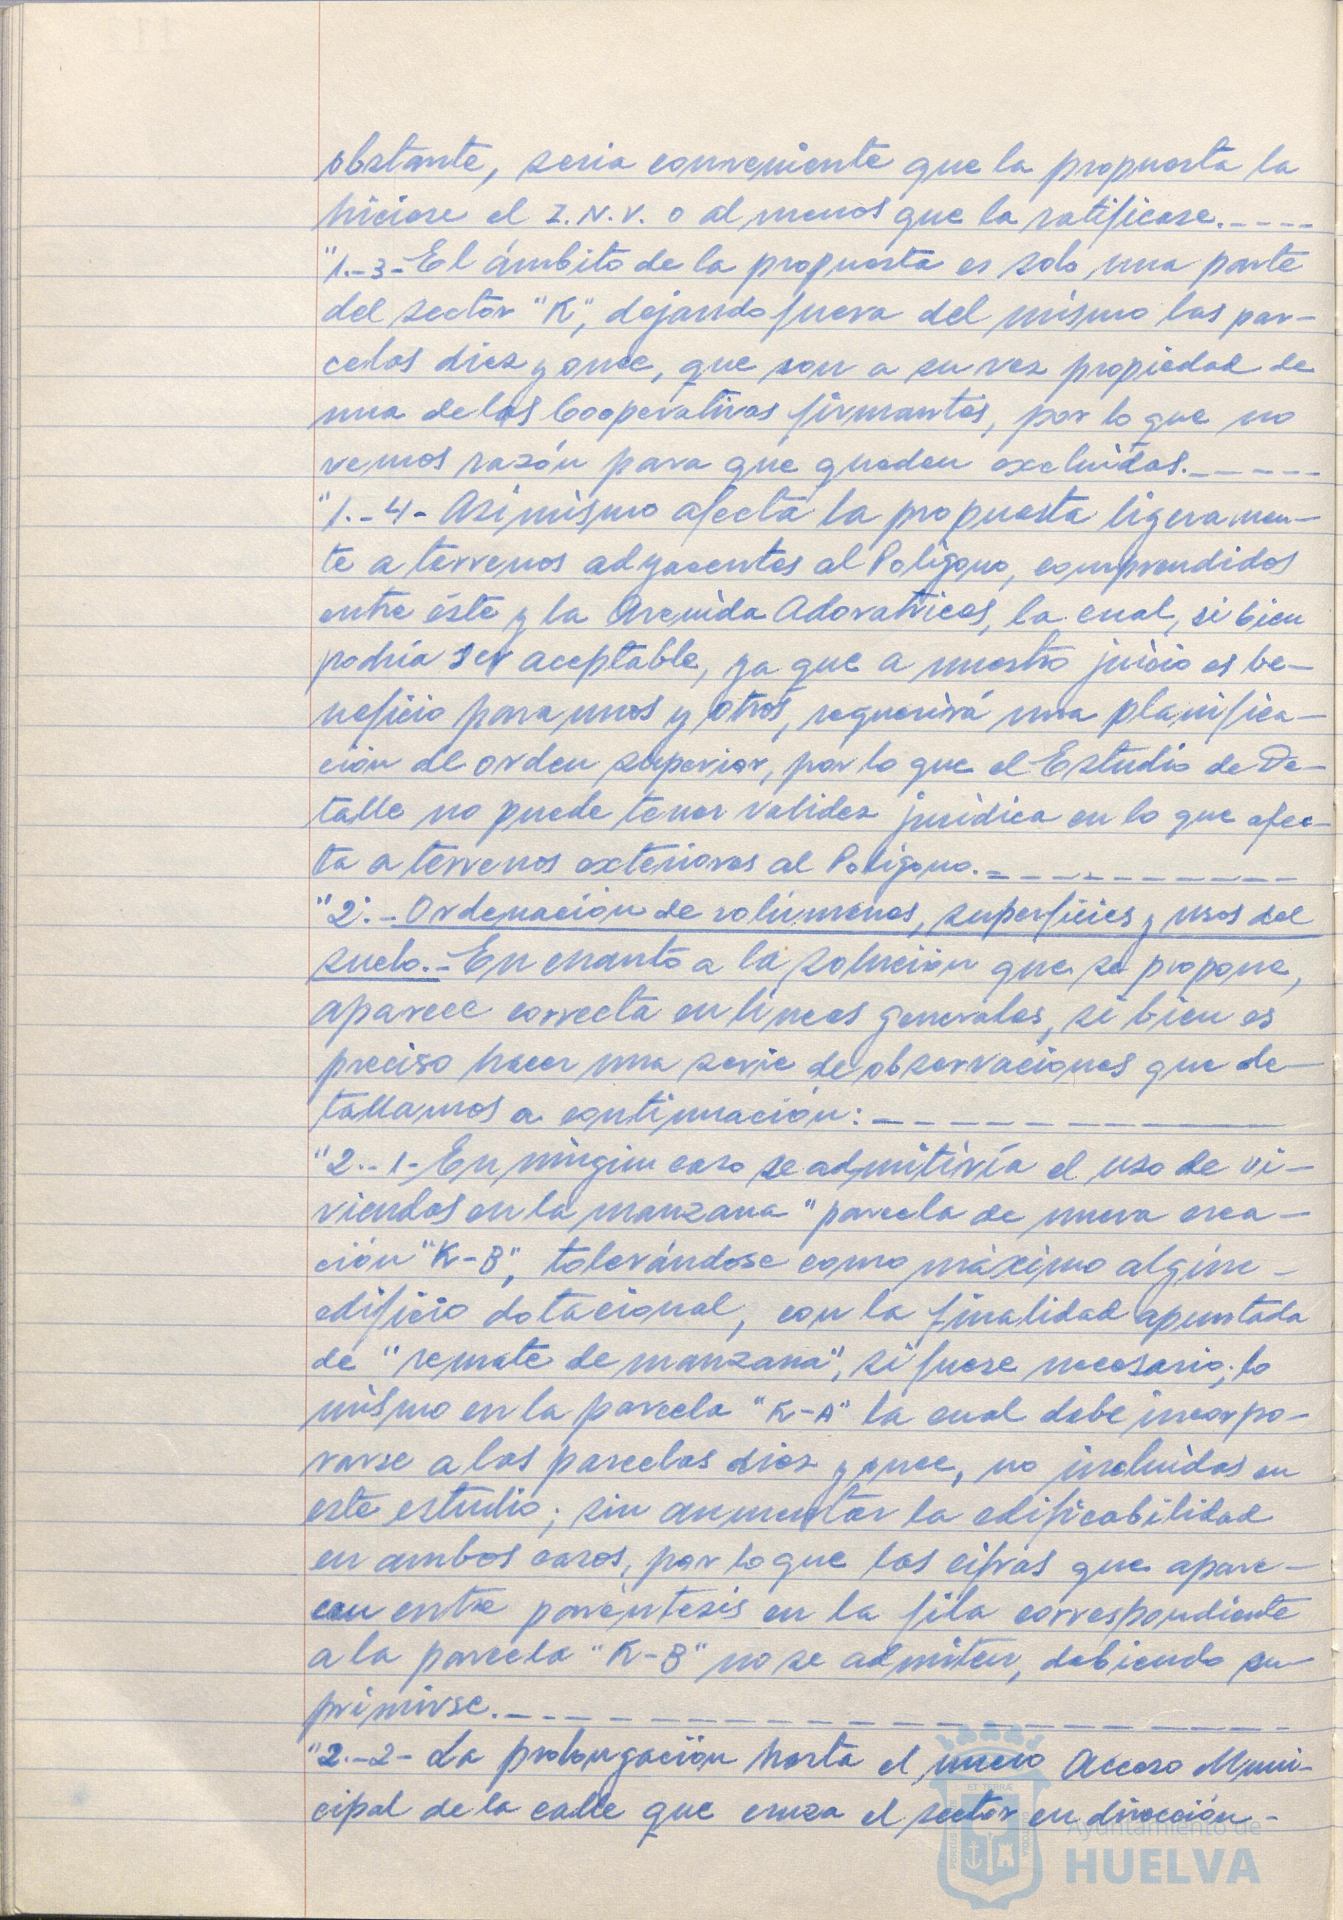 obstante, seria conveniente que la propuesta la
hiciese el I.N.V. o al menos que la ratificase.----
"1.-3-El ámbito de la propuesta es solo una parte
del sector "K", dejando fuera del mismo las par-
celas diez y once, que son a su vez propiedad de
una de las Cooperativas firmantes, por lo que no
vemos razón para que queden excluidas.-----
"1.-4- Asimismo afecta la propuesta ligeramen-
te a terrenos adyacentes al Polígono, comprendidos
entre éste y la Avenida Adoratrices, la cual, si bien
podría ser aceptable, ya que a nuestro juicio es be-
neficio para unos y otros, requerirá una planifica-
ción de orden superior, por lo que el Estudio de De-
talle no puede tener validez jurídica en lo que afec-
ta a terrenos exteriores al Polígono.----------
"2.-Ordenación de volúmenes, superficies y usos del
suelo.-En cuanto a la solución que se propone,
aparece correcta en líneas generales, si bien es
preciso hacer una serie de observaciones que de-
tallamos a continuación:-----------
"2.-1-En ningún caso se admitiría el uso de vi-
viendas en la manzana "parcela de nueva crea-
ción "K-B", tolerándose como máximo algún-
edificio dotacional, con la finalidad apuntada
de "remate de manzana", si fuese necesario; lo
mismo en la parcela "K-A" la cual debe incorpo-
rarse a las parcelas diez y once, no incluidas en
este estudio; sin aumentar la edificabilidad
en ambos casos, por lo que las cifras que apare-
cen entre paréntesis en la fila correspondiente
a la parcela "K-B" no se admiten, debiendo su-
primirse.------------------
"2.-2- La prolongación hasta el nuevo Acceso Muni-
cipal de la calle que cruza el sector en dirección-
Ayuntamiento de
HUELVA